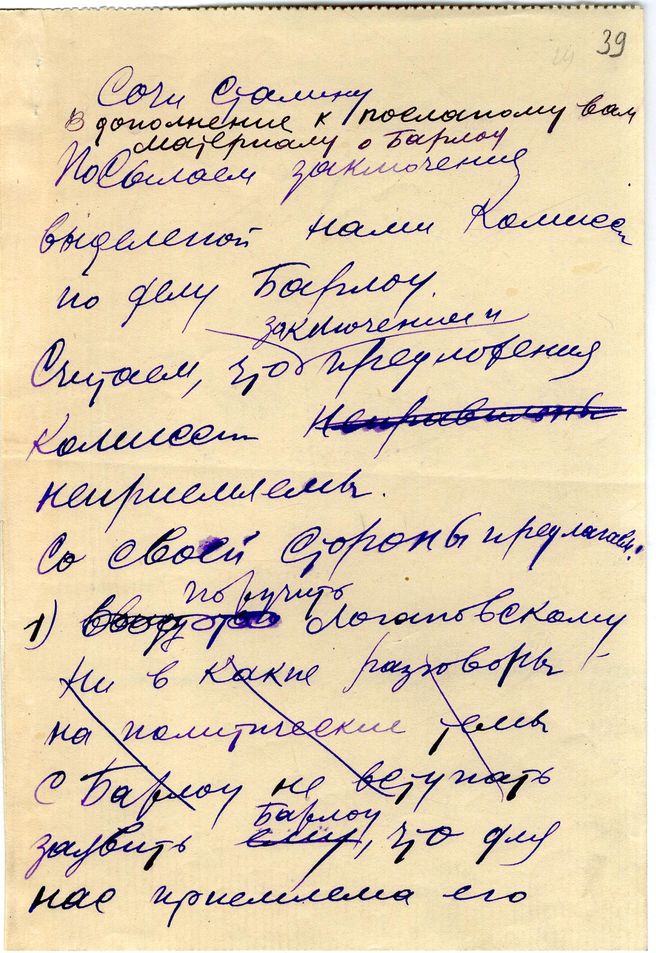 39
Сочи Сталину
В дополнение к посланому вам
материалу о Барлоу
Посылаем заключения
выделеной нами Комисси
по делу Барлоу.
заключением и
Считаем, что предложения
Комиссии неправильны
неприемлемы.
Со своей стороны предлагаем:
поручить
1) Логановскому
ни в какие разговоры
на политические темы
с Барлоу не вступать
Барлоу
заявить ему, что для
нас приемлема его